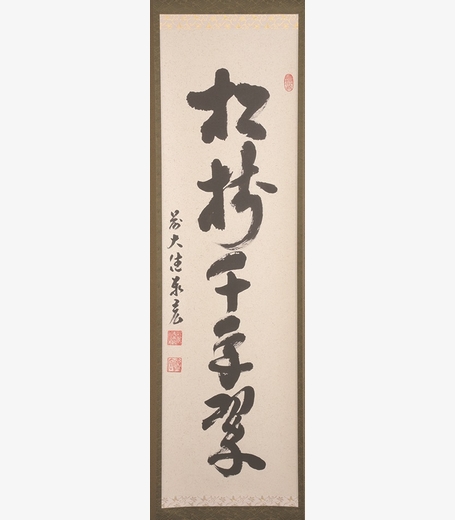 松樹千年翠
前大徳泰